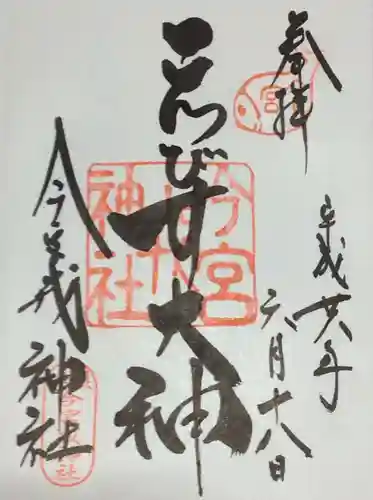 奉拝
平成廿八年
六月十八日
ゑびす大神
今宮戎神社
宮
今宮
戎
神社